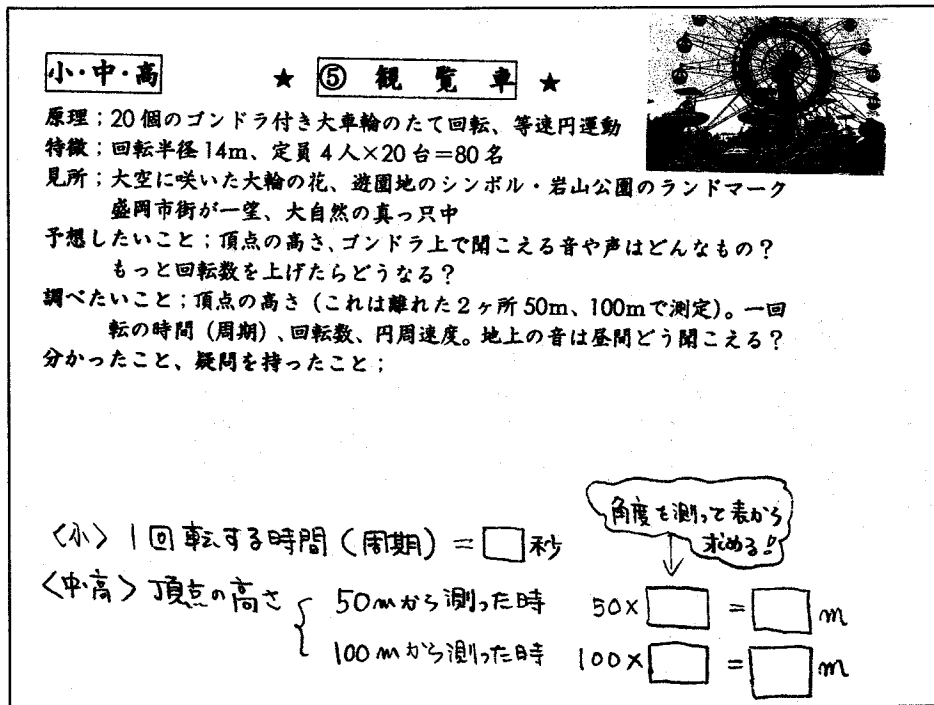 小・中・高
★ ⑤ 観覧車 ★
原理；20個のゴンドラ付き大車輪のたて回転、等速円運動
特徴；回転半径14m、定員4人×20台＝80名
見所；大空に咲いた大輪の花、遊園地のシンボル・岩山公園のランドマーク
盛岡市街が一望、大自然の真っ只中
予想したいこと；頂点の高さ、ゴンドラ上で聞こえる音や声はどんなもの？
もっと回転数を上げたらどうなる？
調べたいこと；頂点の高さ（これは離れた2ヶ所50m、100mで測定）。一回
転の時間（周期）、回転数、円周速度。地上の音は昼間どう聞こえる？
分かったこと、疑問を持ったこと；
角度を測って表から
求める!
〈小〉 1回転する時間（周期）＝□秒
〈中・高〉頂点の高さ
50mから測った時 50×□＝□m
100mから測った時 100×□＝□m